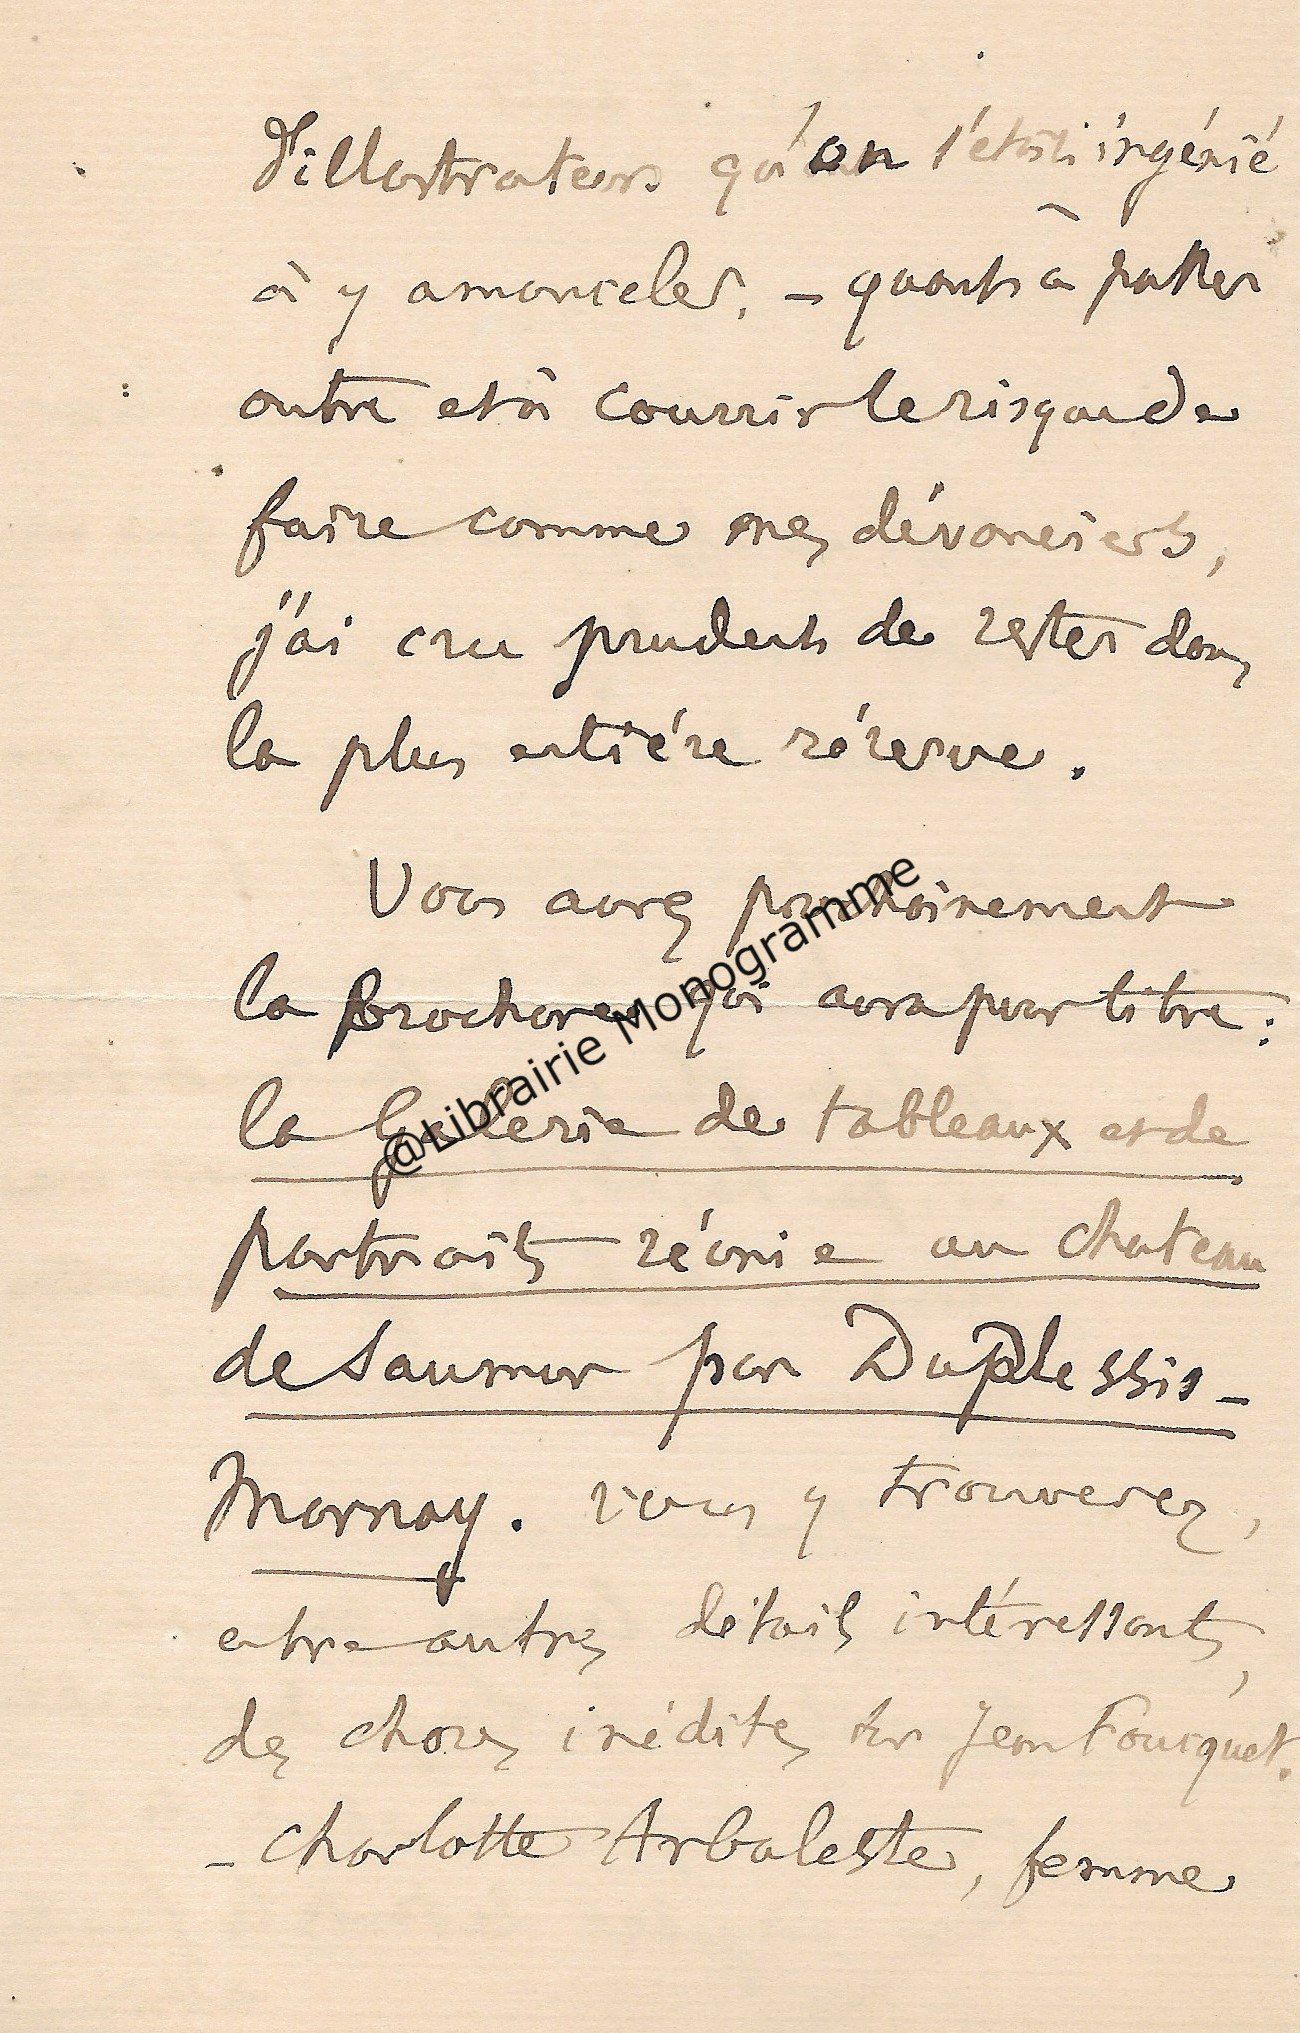 d'illustrateurs qu'on s'était ingénié
à y amonceler. – quant à passer
outre et à courrir le risque de
faire comme mes dévanciers,
j'ai cru prudent de rester dans
la plus entière réserve.
Vous aurez prochainement
la Brochure qui aura pour titre :
la Galerie de tableaux et de
portraits réunie au chateau
de Saumur par DuPlessis-
Mornay. vous y trouverez,
entre autres détails intéressants,
des choses inédites sur Jean Foucquet.
– Charlotte Arbaleste, femme
@Librairie Monogramme